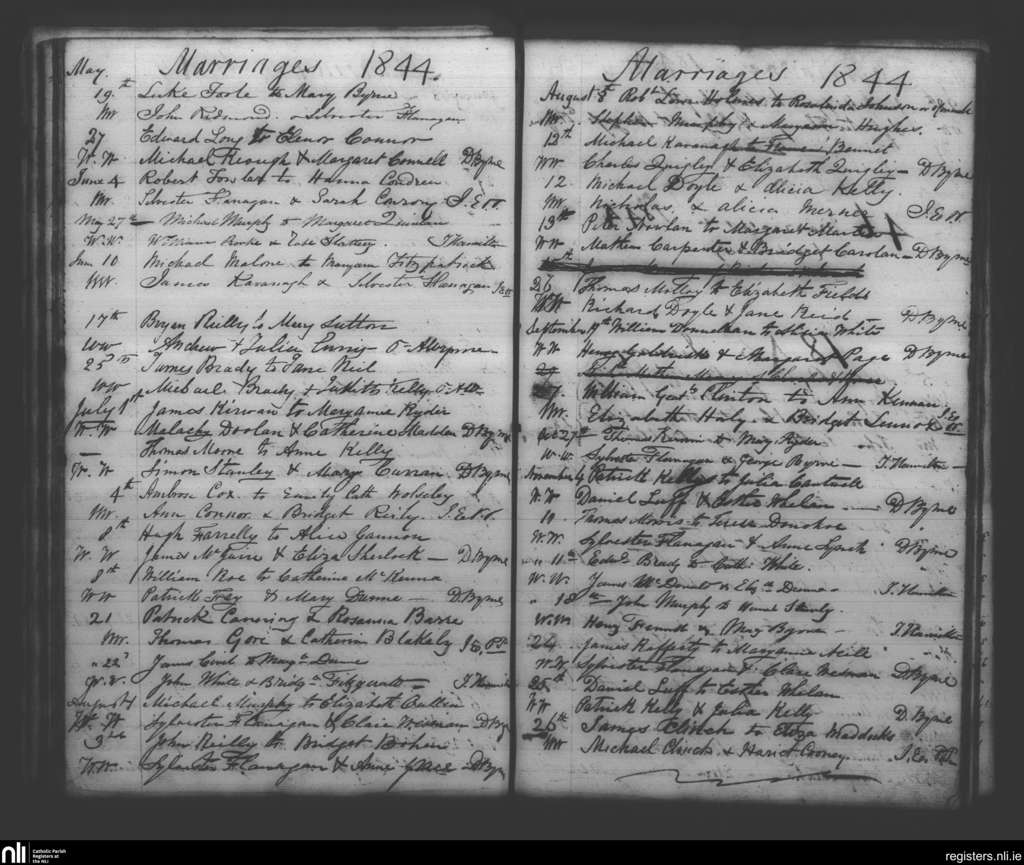 Marriages 1844.
May.
19th Luke Toole to Mary Byrne
Ww. John Redmond. Silvester Flanagan
27 Edward Long to Elenor Connor
W. W Michael Keough & Margaret Connell D Byrne
June 4 Robert Fowler to Hanna Condren
Ww. Silvester Flanagan & Sarah Conroy J. E
May 27th Michael Murphy to Margaret Quinlan
W. W. William Burke & Slattery. J Hamilton
June 10 Michael Malone to Maryann Fitzpatrick
WW. James Kavanagh & Silvester Flanagan
17th Bryan Reilly to Mary Sutton
WW Andrew & Julia Ennis
25th James Brady to Jane Neil
WW Michael Brady & Reilly
July 1st James Kirwan to Maryanne Ryder
W. W Malachy Doolan & Catherine Madden D Byrne
Thomas Moore to Anne Kelly
W. W Simon Stanley & Mary Curran D Byrne
4th Ambrose Cox to Emily Cath Wolseley
Ww. Ann Connor & Bridget Reily. J. E. P.P.
8th Hugh Farrelly to Alice Gannon
W. W James McGuire & Eliza Sherlock D Byrne
8th William Roe to Catherine McKenna
WW Patrick Fay & Mary Dunne D. Byrne
21 Patrick Canering & Rosanna Barre
Ww. Thomas Gore & Catherin Blakely J E. PP.
" 22d James to Dunne
W. W. John White & Bridgt Fitzgerald J Hamilton
August 4 Michael Murphy to Elizabeth Cullin
W. W Sylvester Flanagan & Clare Wiseman D Byrne
3rd John Reilly to Bridget
W W Sylvester Flanagan & Anne Grace D Byrne
Marriages 1844
August 8 Robt Holmes to Rosalinda Johnson
Ww. Stephen Murphy & Maryann Hughes.
12th Michael Kavanagh to Bennet
WW Charles Quigley & Elizabeth Quigley D Byrne
12. Michael Doyle & Alicia Kelly.
WW Nicholas & Alicia J E
13th Peter Nowlan to Margaret Martin
WW Mathew Carpenter & Bridget Carolan D Byrne
26 Thomas Motley to Elizabeth Fields
W.W Richard Doyle & Jane Reid D Byrne
September William Donnellan to Alicia White
W W Henry Goldsmith & Margaret Page D Byrne
29
William Clinton to Ann Keenan
Ww. Elizabeth & Bridget Lennon
Oct 27th Thomas to Mary Ryder
W. W. Sylvester Flanagan & George Byrne J. Hamilton
November 4 Patrick Kelly to Julia Cantwell
W. W Daniel Luff & Esther Whelan D Byrne
10. Thomas Morris to Teresa Donohoe
W. W. Sylvester Flanagan & Anne Lynch D Byrne
" 11th Edwd Brady to Cathe White.
W. W. James McDonnell & Elizth Dunne J. Hamilton
" 18th John Murphy to Stanly.
W. W. Henry & Mary Byrne J Hamilton
24 James Rafferty to Maryanne Neill
W. W. Sylvester Flanagan & Clare Wesman D Byrne
25th Daniel Luff to Esther Whelan
W W Patrick Kelly & Julia Kelly D. Byrne
26th James Clinch to Eliza Maddocks
WW Michael Clinch & Hariot Cooney J. E. PP.
nli
Catholic Parish
Registers at
the NLI
registers.nli.ie